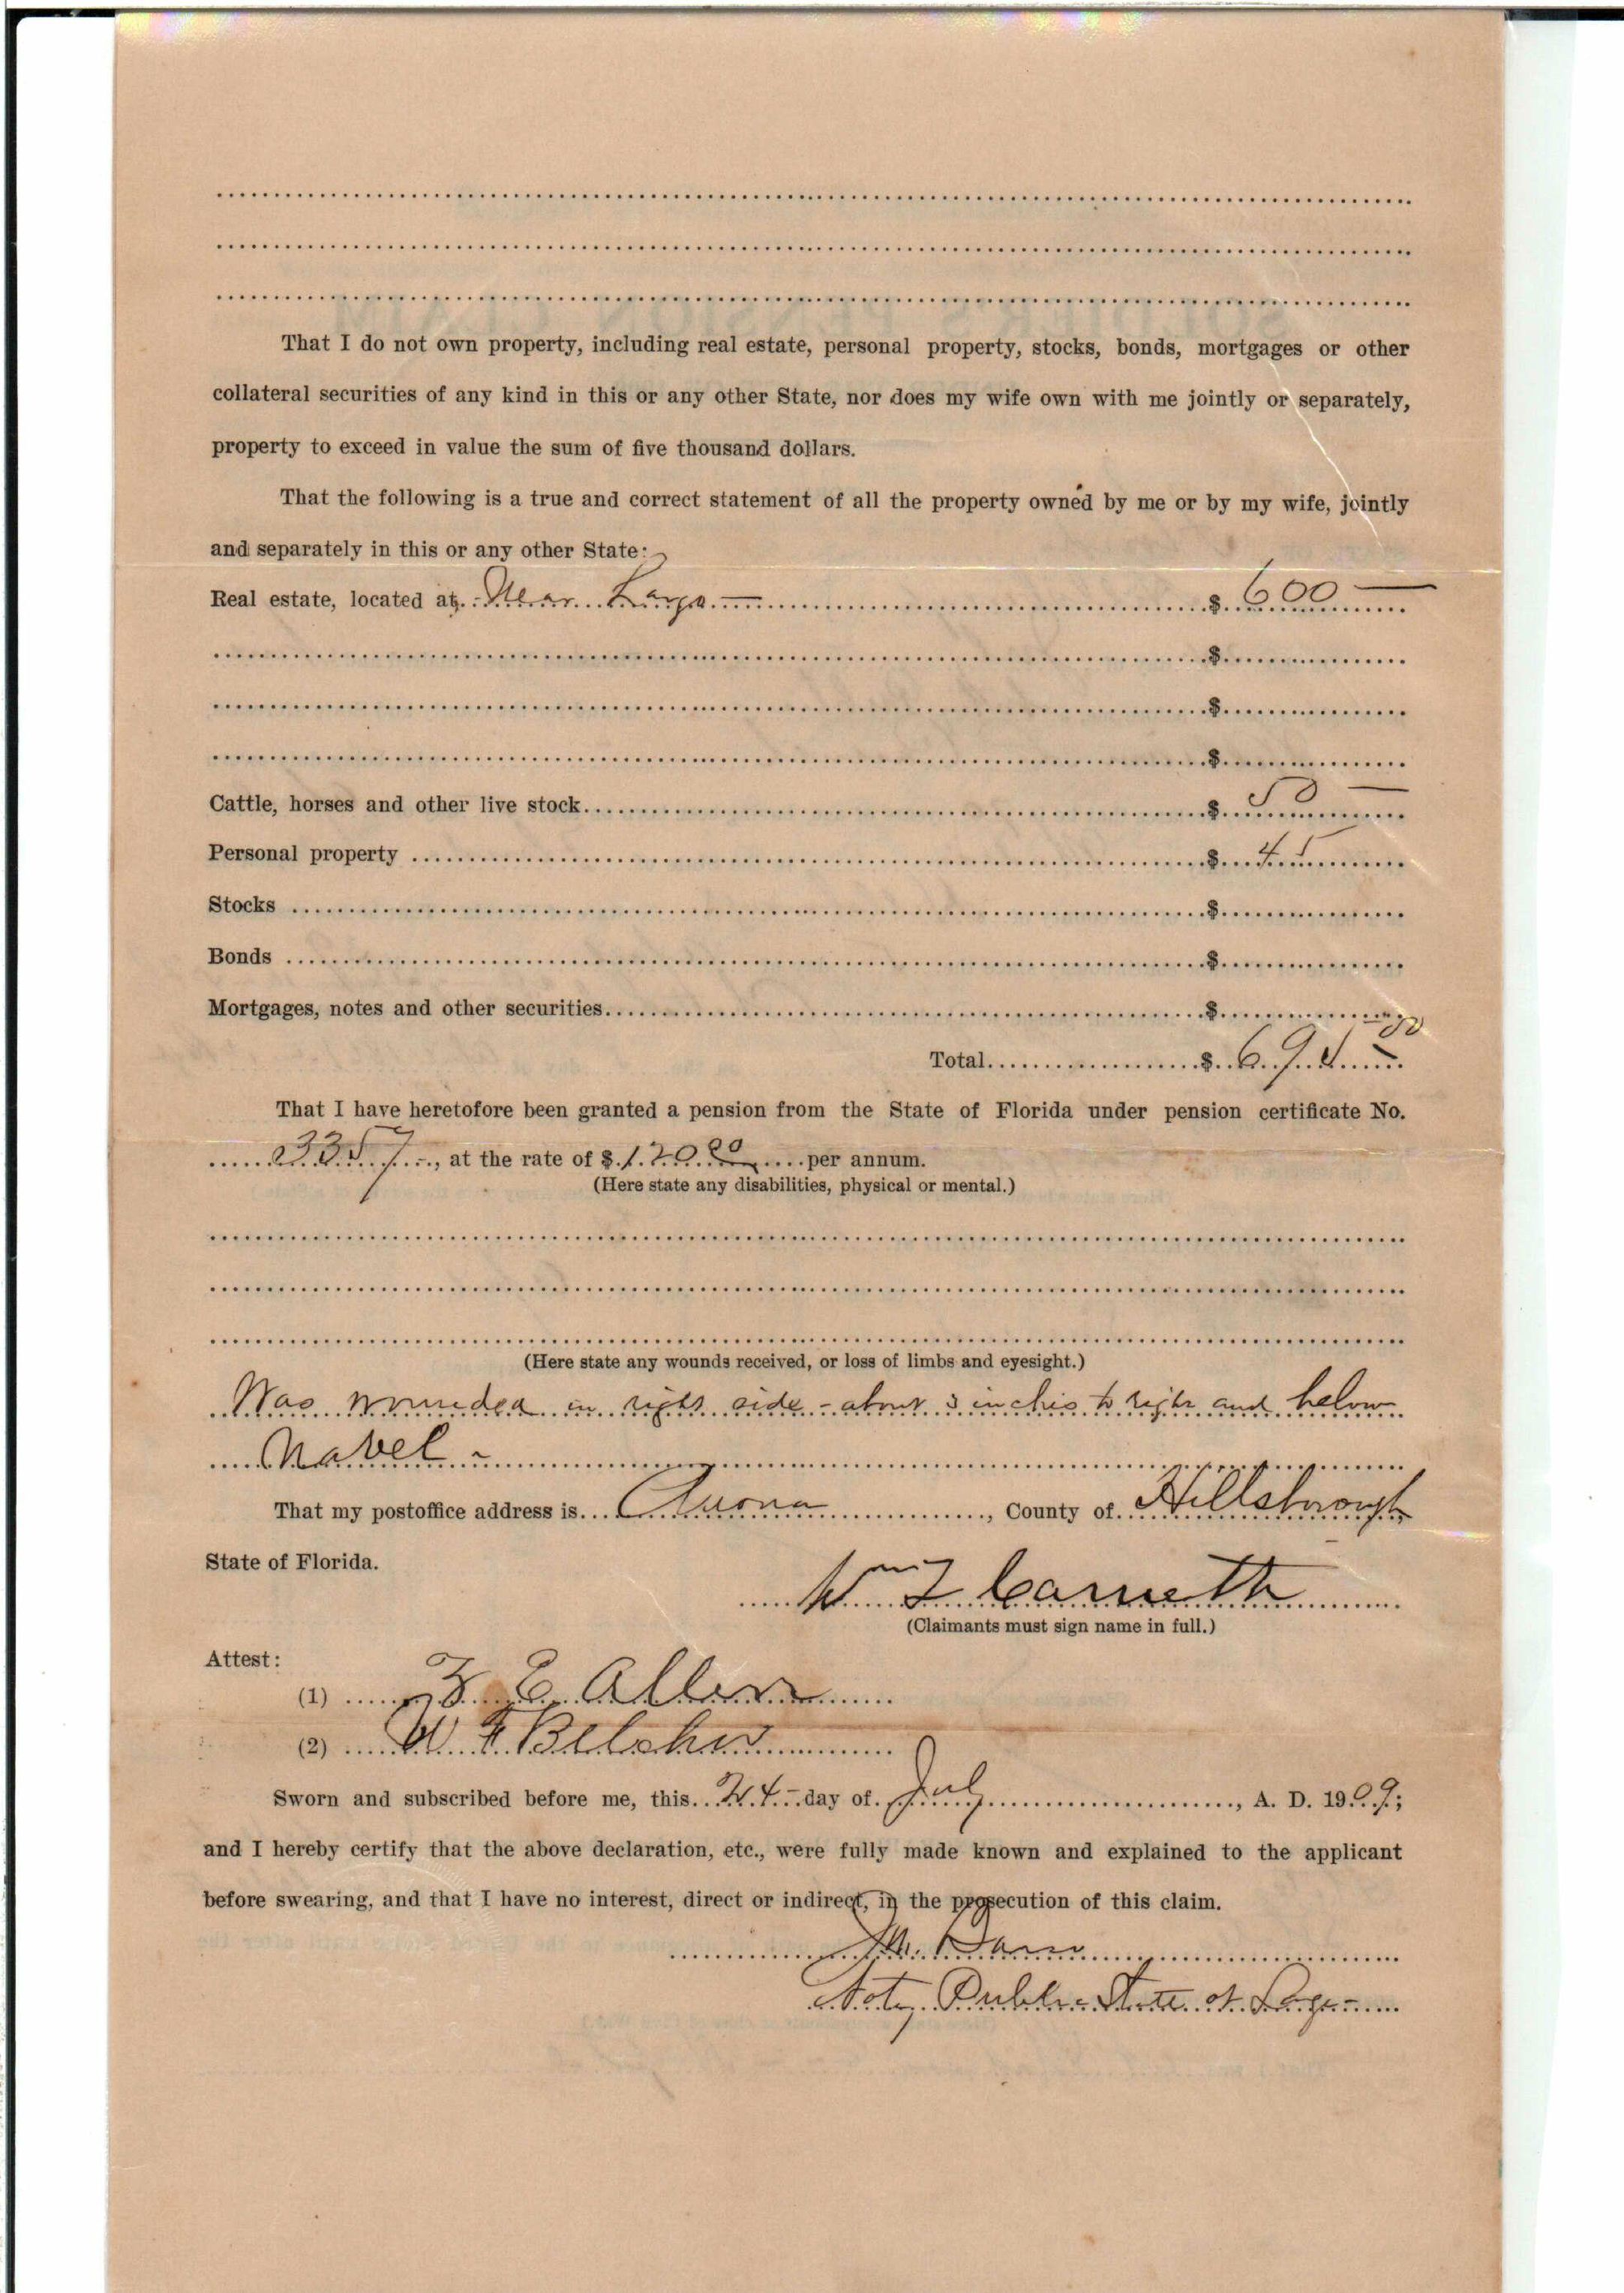 That I do not own property, including real estate, personal property, stocks, bonds, mortgages or other
collateral securities of any kind in this or any other State, nor does my wife own with me jointly or separately,
property to exceed in value the sum of five thousand dollars.
That the following is a true and correct statement of all the property owned by me or by my wife, jointly
and separately in this or any other State:
Real estate, located at Near Largo — $ 600 —
$
$
$
Cattle, horses and other live stock $ 50 —
Personal property $ 45
Stocks $
Bonds $
Mortgages, notes and other securities $
Total $ 695 00
That I have heretofore been granted a pension from the State of Florida under pension certificate No.
3357, at the rate of $ 120 00 per annum.
(Here state any disabilities, physical or mental.)
(Here state any wounds received, or loss of limbs and eyesight.)
Was wounded in right side - about 3 inches to right and below
Navel -
That my postoffice address is Anona, County of Hillsborough
State of Florida.
Wm F Carneth
(Claimants must sign name in full.)
Attest:
(1) E Allen
(2) W F Belcher
Sworn and subscribed before me, this 24 - day of July, A. D. 1909;
and I hereby certify that the above declaration, etc., were fully made known and explained to the applicant
before swearing, and that I have no interest, direct or indirect, in the prosecution of this claim.
Noty Public State at Large -